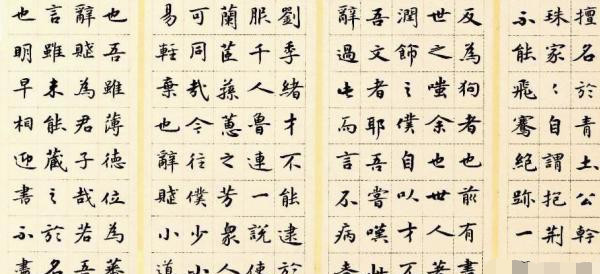 擅名於青土公幹
珠家〻自謂抱荊
不能飛騫絕跡一
反為狗者也前有書
世之嗤余也世人著
潤飾之僕自以才不
吾文者耶吾嘗嘆此
辭過此而言不病
劉季緒才不能逮於
服千人魯連一說使
蘭茝蓀蕙之芳衆人
可同哉今往僕少小
易輕棄也辭賦小道
也吾雖薄德位為蕃
辭賦為君子哉若吾
言雖未能藏之於名
也明早相迎書不